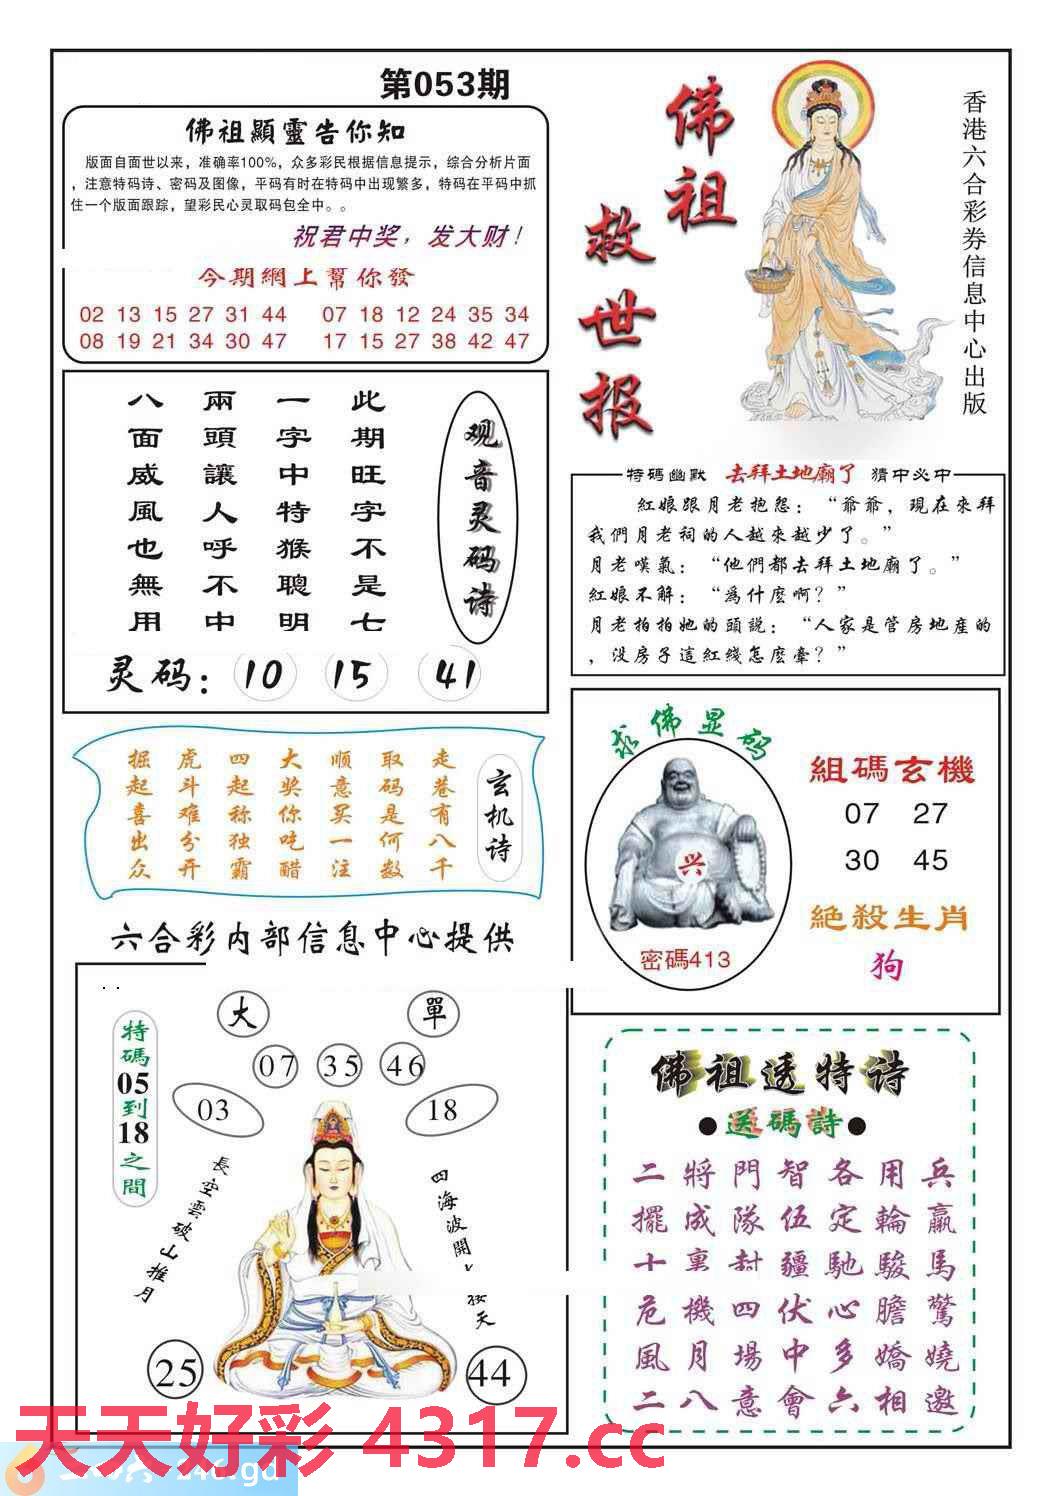 第053期
佛祖顯靈告你知
版面自面世以来，准确率100%，众多彩民根据信息提示，综合分析片面
，注意特码诗、密码及图像，平码有时在特码中出现繁多，特码在平码中抓
住一个版面跟踪，望彩民心灵取码包全中。。
祝君中奖，发大财！
今期網上幫你發
02 13 15 27 31 44 07 18 12 24 35 34
08 19 21 34 30 47 17 15 27 38 42 47
佛祖
救世报
香港六合彩券信息中心出版
观音灵码诗
此期旺字不是七
一字中特猴聰明
兩頭讓人呼不中
八面威風也無用
灵码：10 15 41
特碼幽默 去拜土地廟了 猜中必中
紅娘跟月老抱怨：“爺爺，現在來拜
我們月老祠的人越來越少了。”
月老嘆氣：“他們都去拜土地廟了。”
紅娘不解：“爲什麽啊？”
月老拍拍她的頭説：“人家是管房地産的
，没房子這紅綫怎麽牽？”
玄机诗
走巷有八千
取码是何数
顺意买一注
大奖你吃醋
四起称独霸
虎斗难分开
掘起喜出众
求佛显码
兴
密碼413
組碼玄機
07 27
30 45
絶殺生肖
狗
六合彩内部信息中心提供
特碼05到18之間
大 單
07 35 46
03 18
長空雲破山推月
四海波開 接天
25 44
佛祖透特诗
●送碼詩●
二將門智各用兵
擺成隊伍定輪贏
十裏封疆馳駿馬
危機四伏心膽驚
風月場中多嬌嬈
二八意會六相邀
天天好彩 4317.cc
246.gd